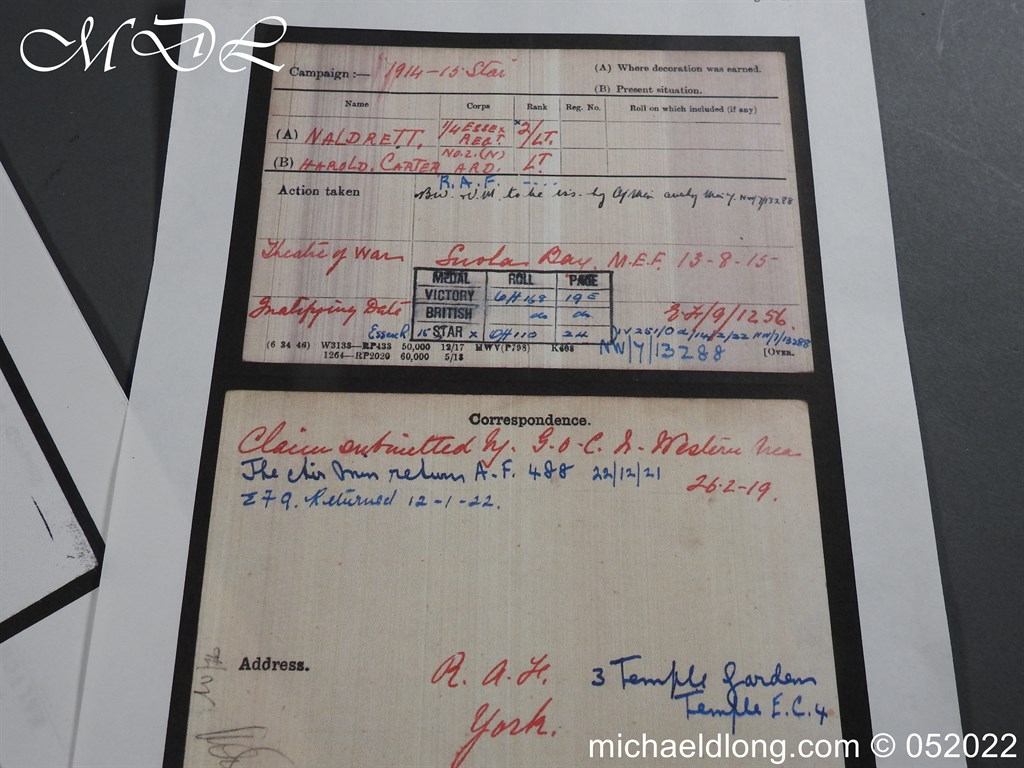 MDL
Campaign :— 1914-15 Star
(A) Where decoration was earned.
(B) Present situation.
Name Corps Rank Reg. No. Roll on which included (if any)
(A) NALDRETT, 1/4 ESSEX REGT. x2/LT.
(B) HAROLD. CARTER No. 2. (N) A.R.D. LT.
R.A.F. -----
Action taken BW. V.M. to be iss. by NW/7/13288
Theatre of War Suvla Bay, M.E.F. 13-8-15-
MEDAL ROLL PAGE
VICTORY 6H 168 19E
BRITISH do do
15 STAR x 6H 110 24
Qualifying Date E.F/9/1256.
Essex
NW/7/13288
(6 34 46) W3133—RP433 50,000 12/17 MWV(P798) K608 [OVER.
1264—RP2020 60,000 5/18
Correspondence.
Claim submitted by G.O.C. N. Western Area
26-2-19.
The Air Min return A.F. 488 22/12/21
E79. Returned 12-1-22.
Address.
R.A.F.
York.
3 Temple Gardens
Temple E.C.4
michaeldlong.com © 052022